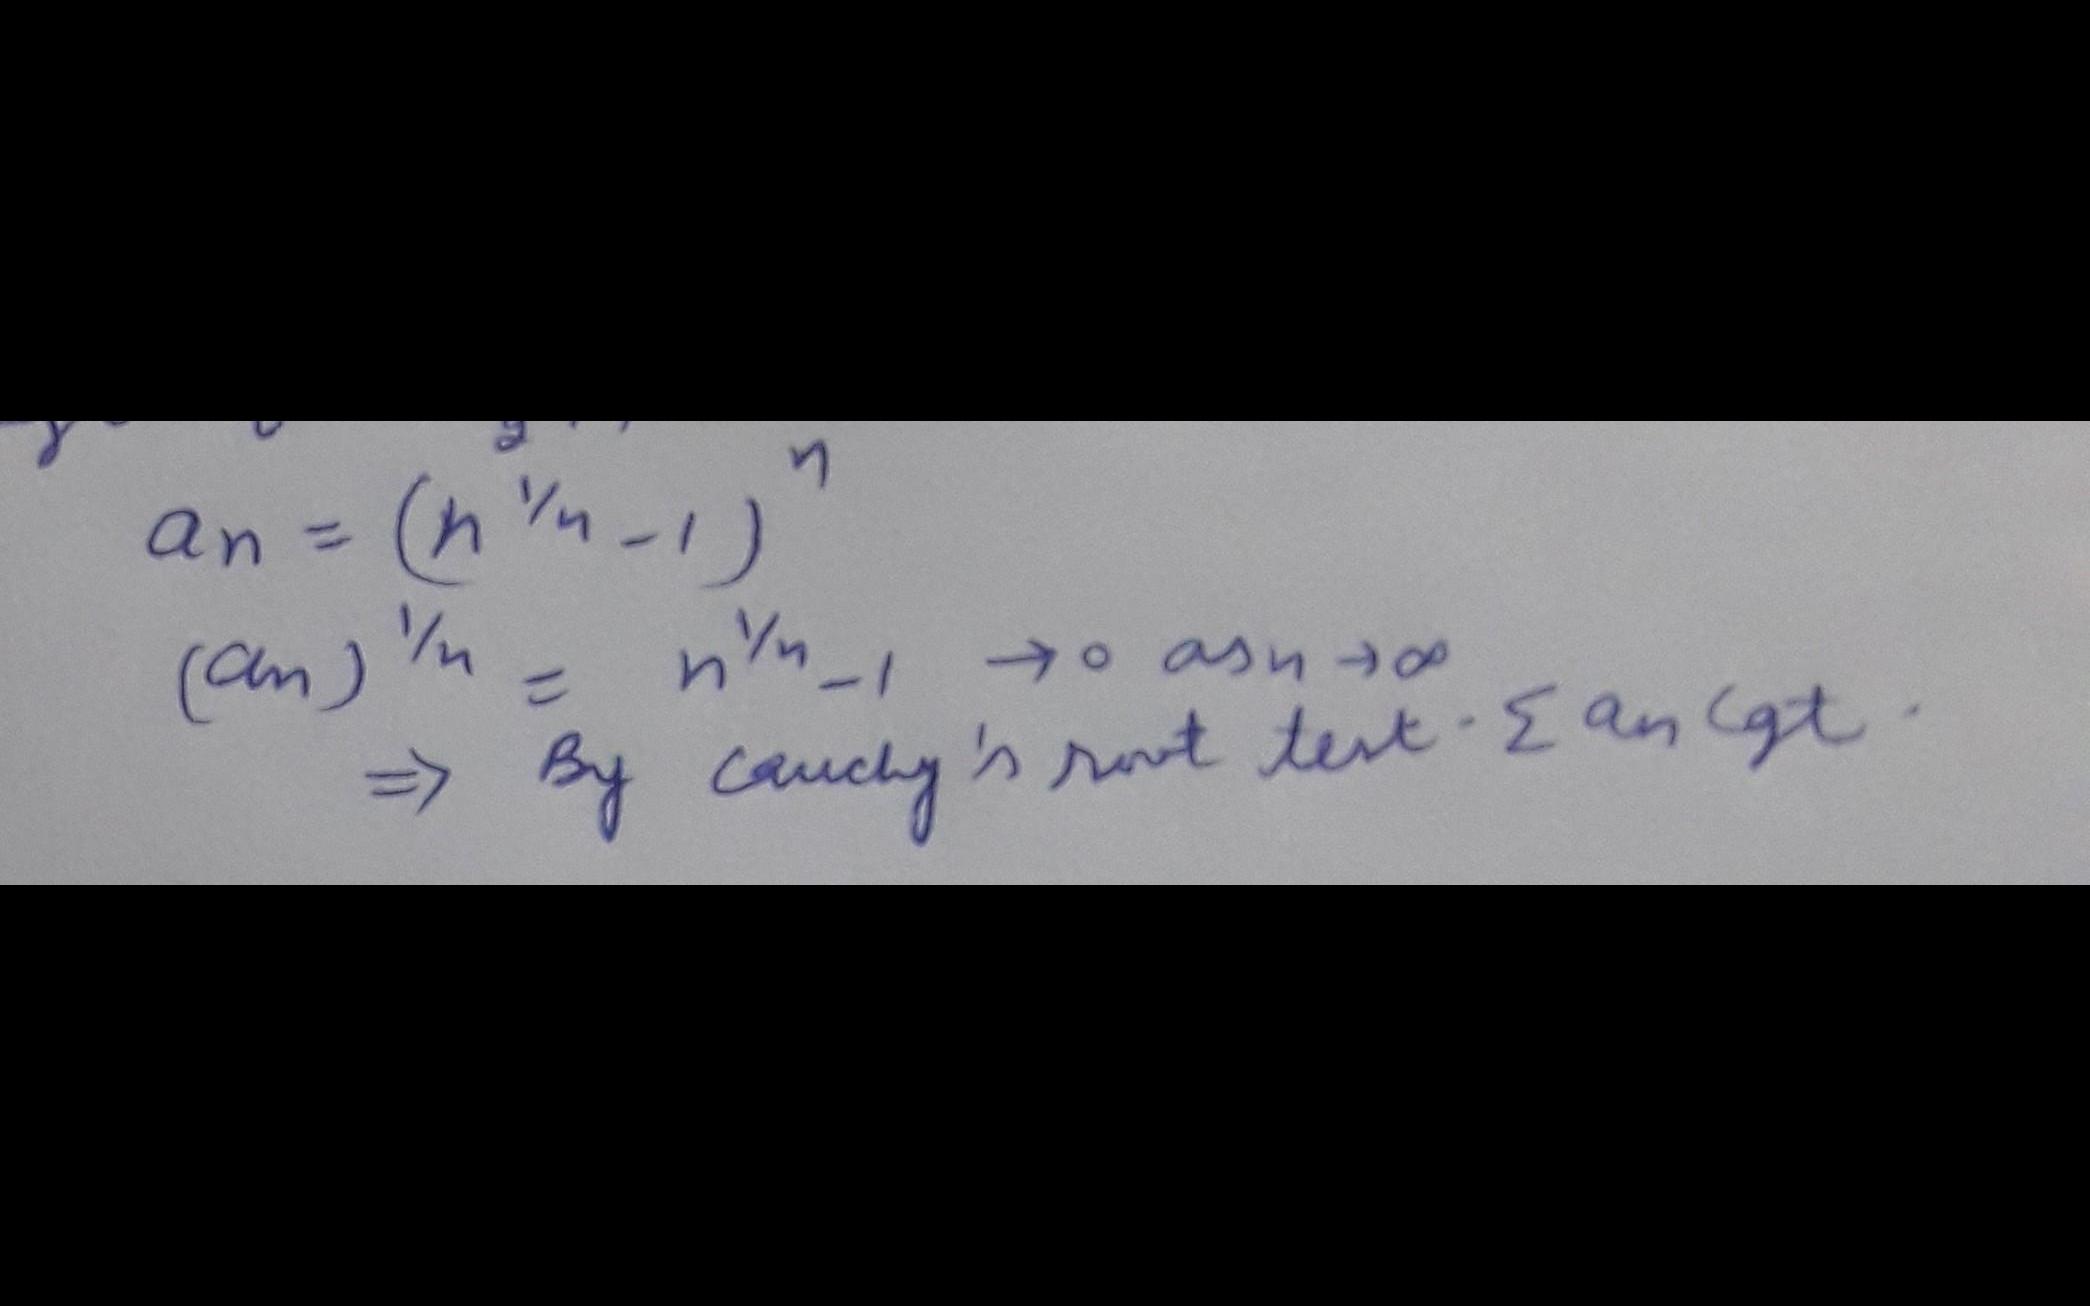 an = (n^1/n - 1)^n
(an)^1/n = n^1/n - 1 → 0 as n → ∞
⇒ By cauchy's root test. Σ an Cgt.